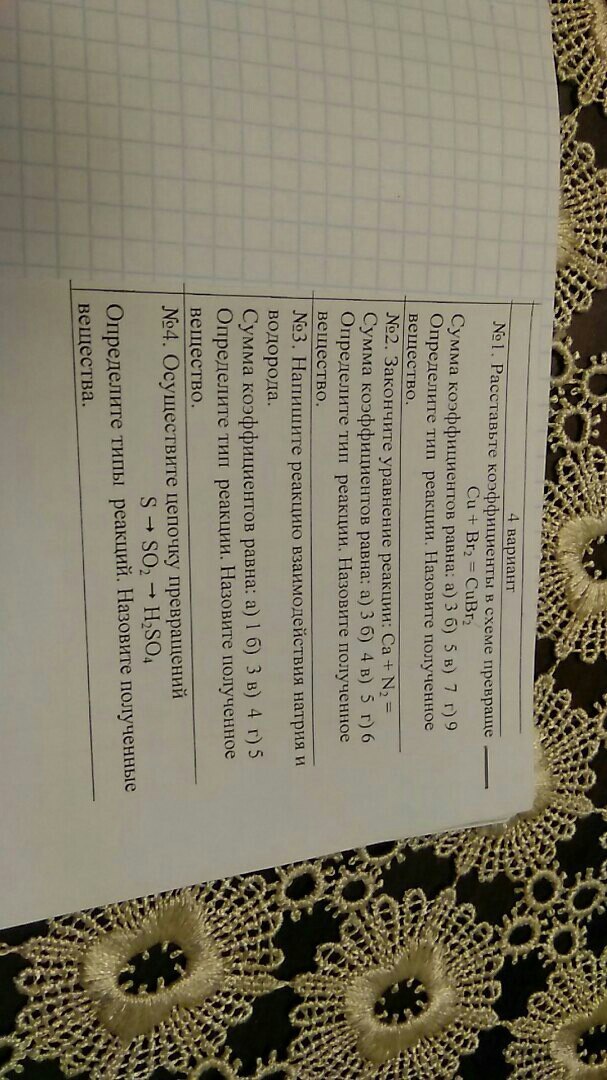 4 вариант
№1. Расставьте коэффициенты в схеме превраще
Cu + Br₂ = CuBr₂
Сумма коэффициентов равна: а) 3 б) 5 в) 7 г) 9
Определите тип реакции. Назовите полученное
вещество.
№2. Закончите уравнение реакции: Ca + N₂ =
Сумма коэффициентов равна: а) 3 б) 4 в) 5 г) 6
Определите тип реакции. Назовите полученное
вещество.
№3. Напишите реакцию взаимодействия натрия и
водорода.
Сумма коэффициентов равна: а) 1 б) 3 в) 4 г) 5
Определите тип реакции. Назовите полученное
вещество.
№4. Осуществите цепочку превращений
S → SO₂ → H₂SO₄
Определите типы реакций. Назовите полученные
вещества.